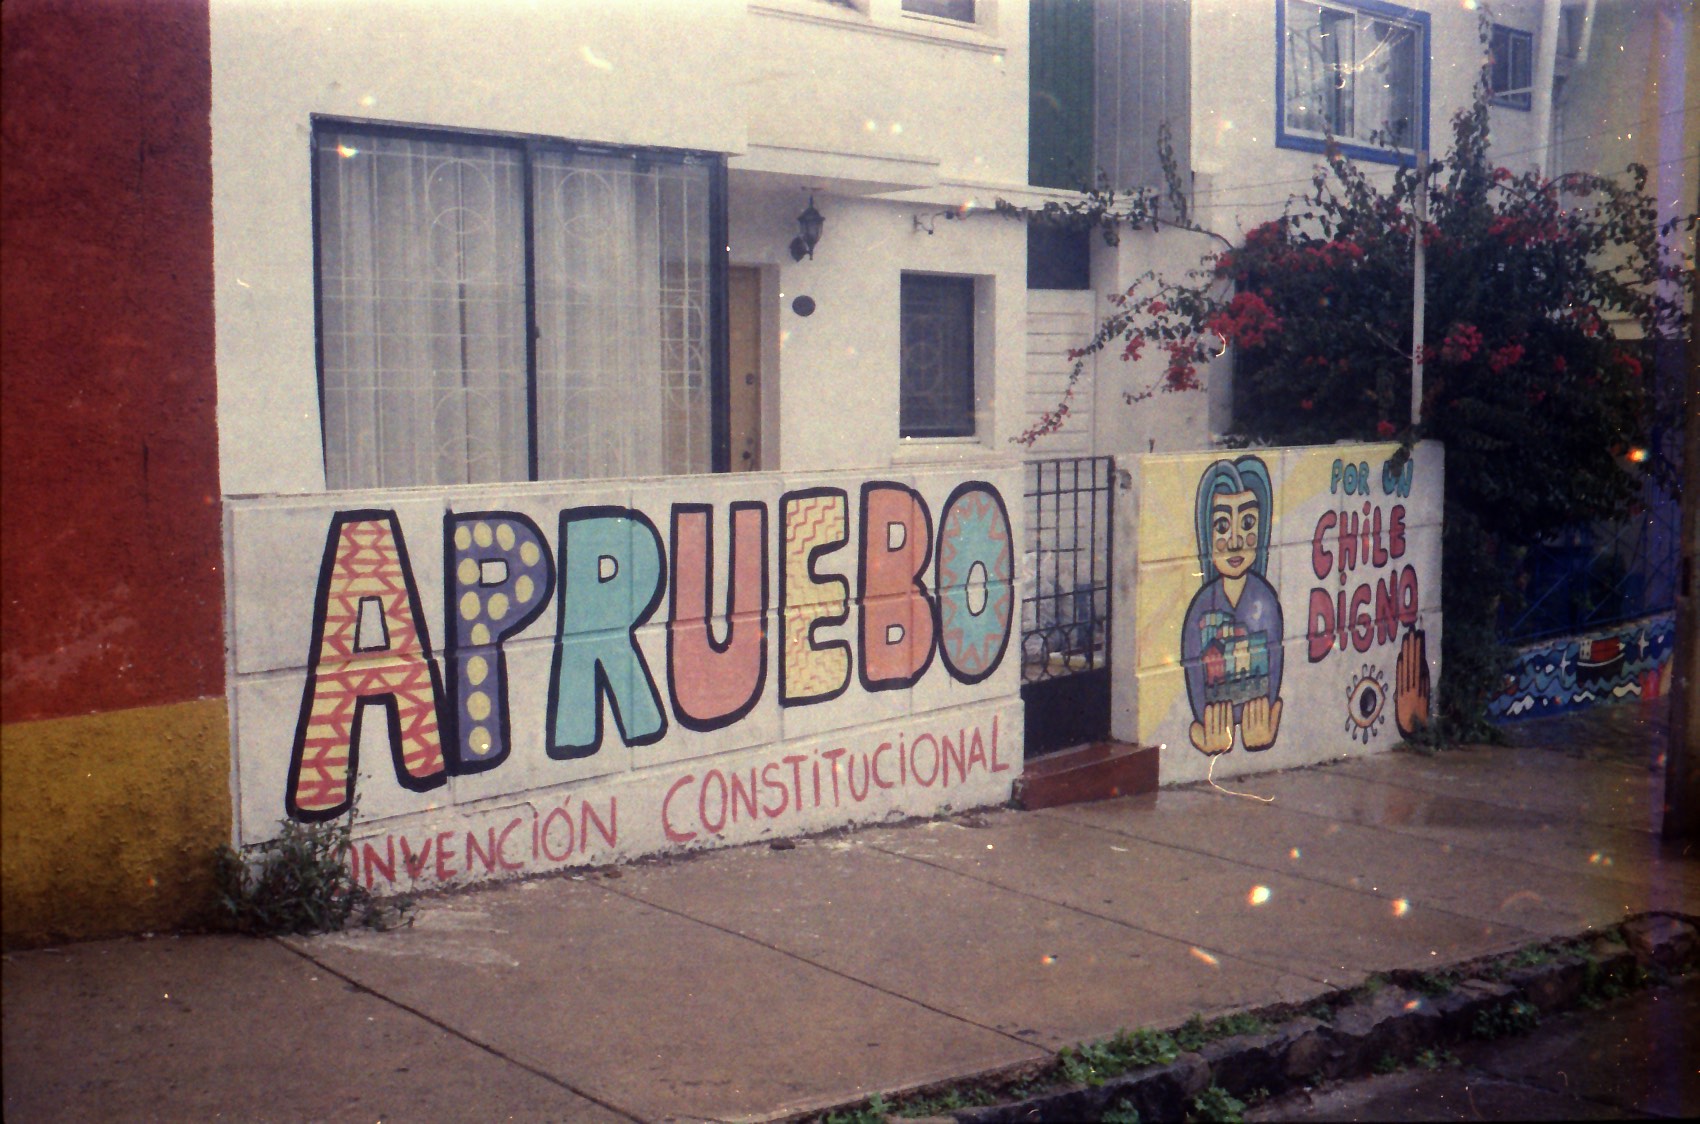 APRUEBO
CONVENCIÓN CONSTITUCIONAL
POR UN
CHILE
DIGNO